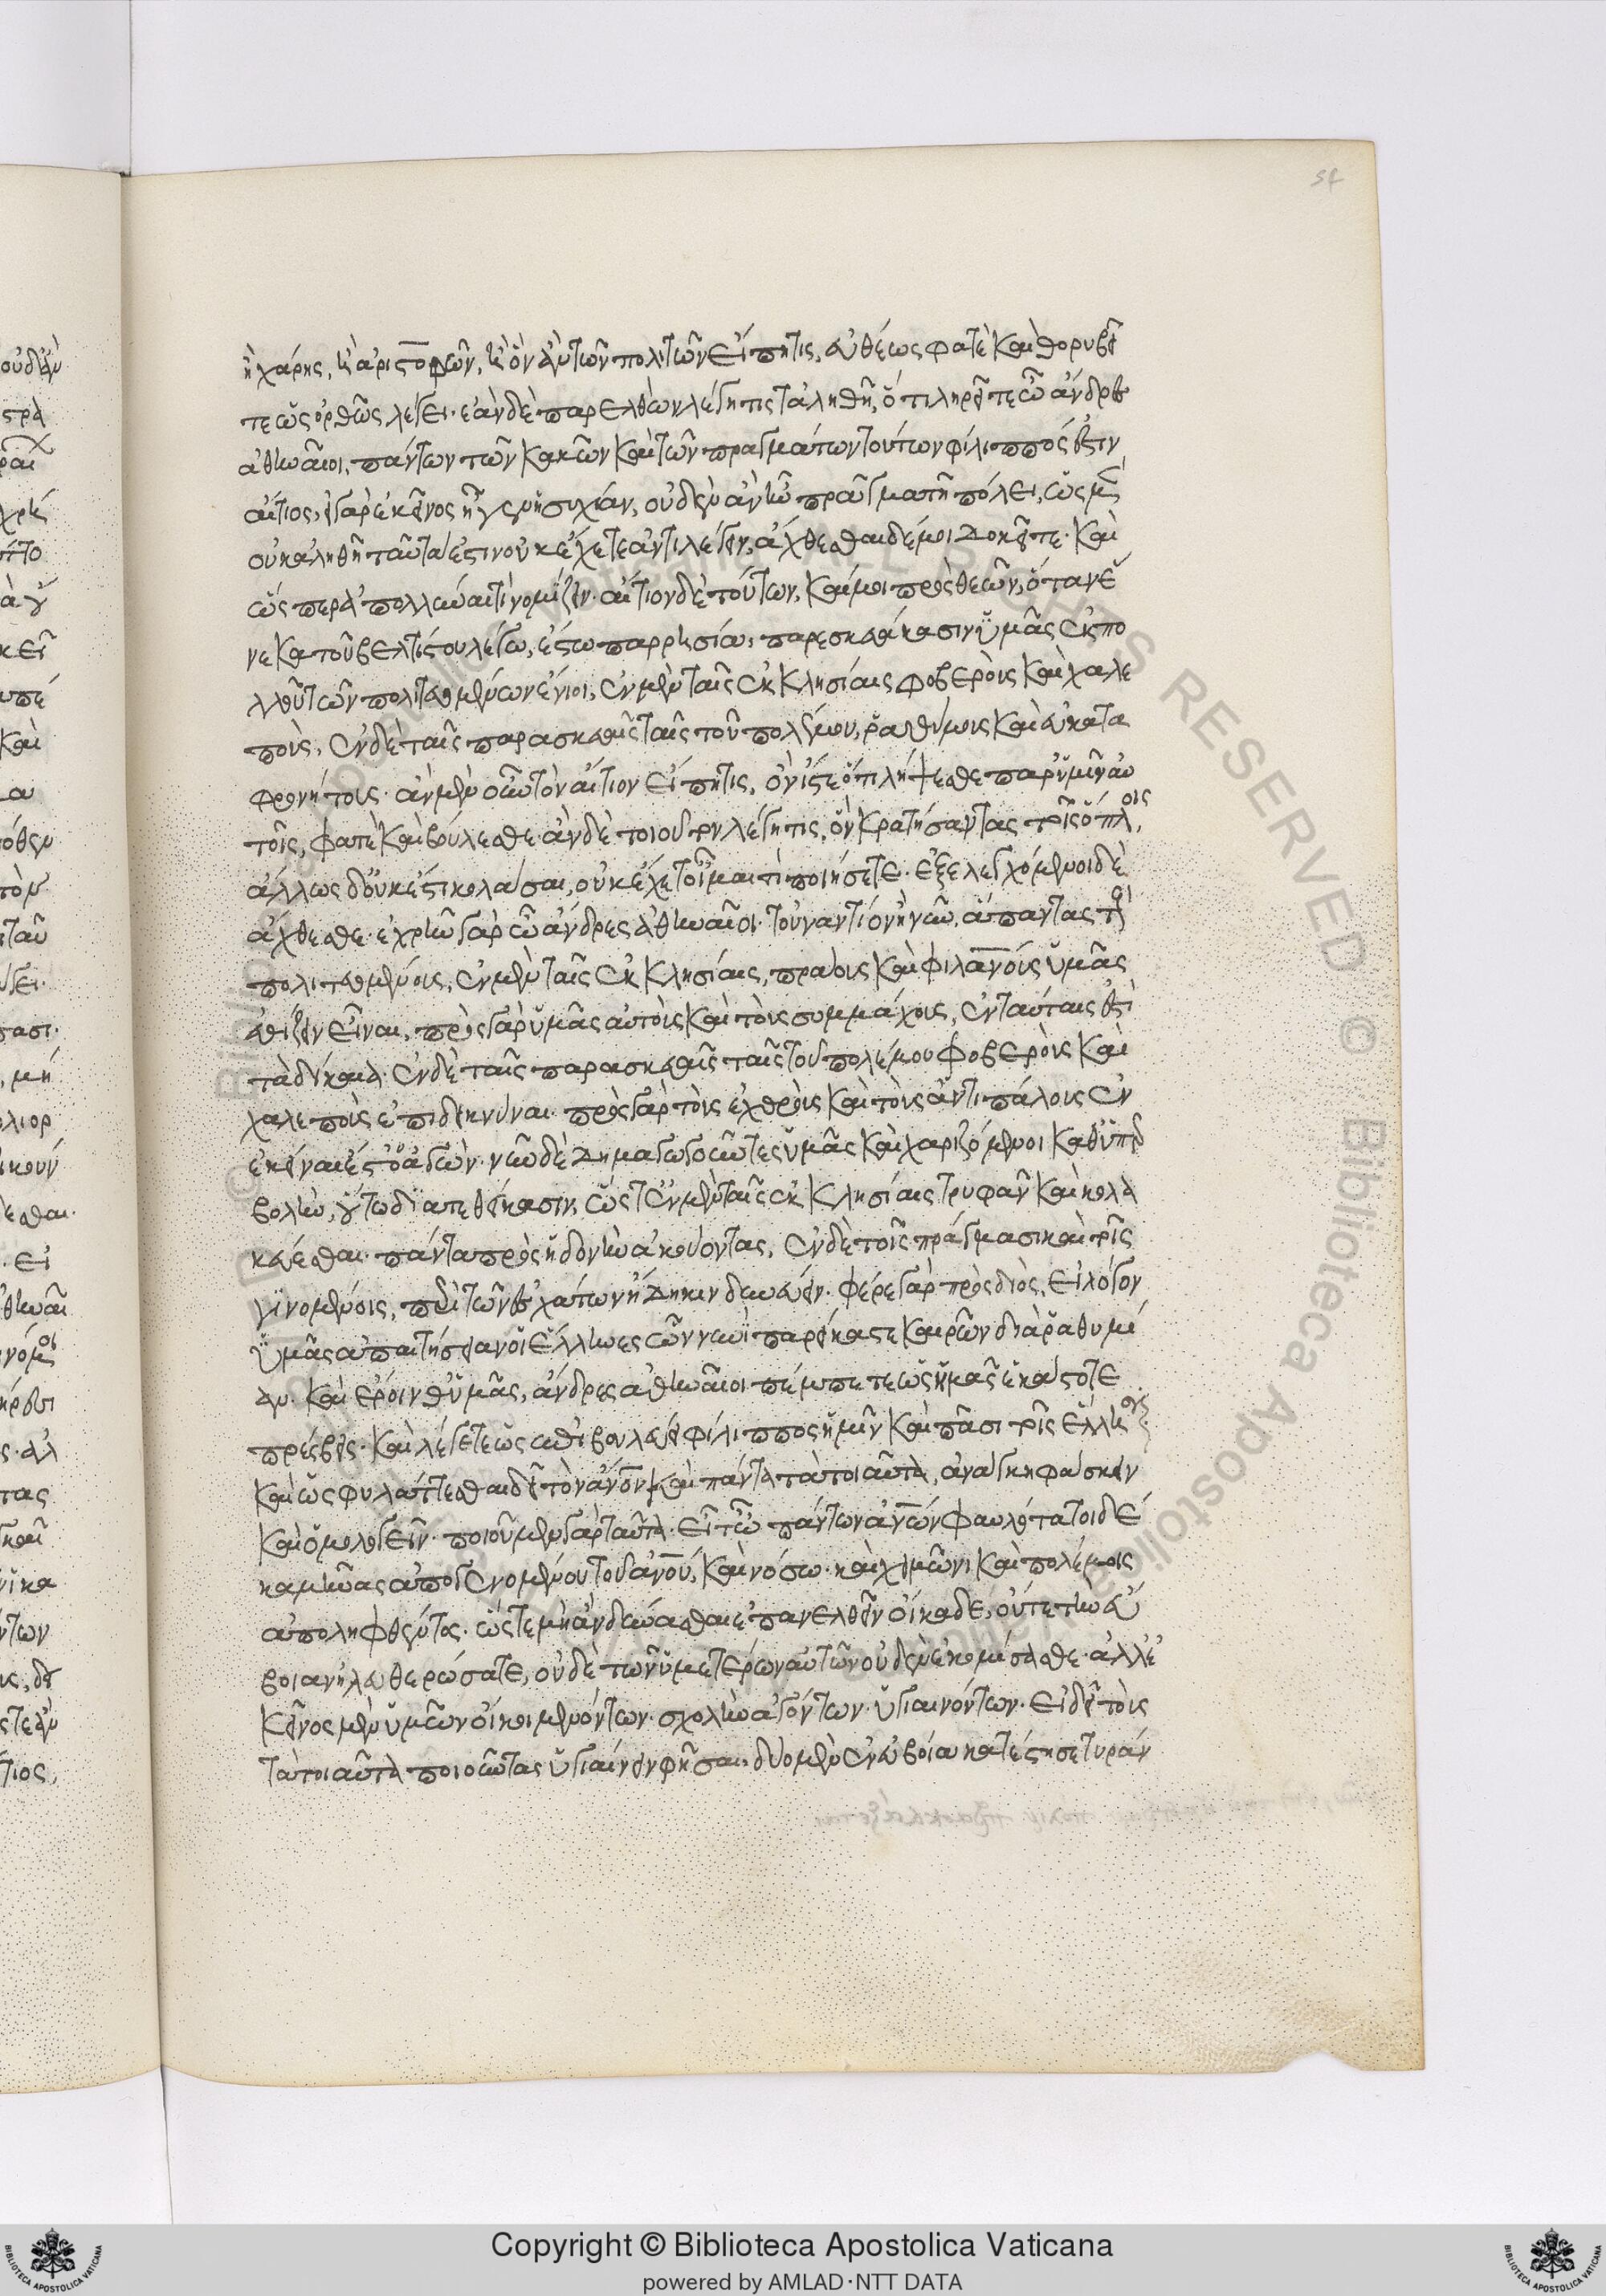 ἢ χάρης, ἢ ἀριστοφῶν, ἢ ὃν ἂν τῶν πολιτῶν εἴπῃ τις, εὐθέως φατὲ καὶ θορυβεῖ
τε ὡς ὀρθῶς λέγει· ἐὰν δὲ παρελθὼν λέγῃ τις τἀληθῆ, ὅτι ληρεῖτε ὦ ἄνδρες
ἀθηναῖοι, πάντων τῶν κακῶν καὶ τῶν πραγμάτων τούτων φίλιππός ἐστιν
αἴτιος, εἰ γὰρ ἐκεῖνος ἦγεν ἡσυχίαν, οὐδὲν ἂν ἦν πρᾶγμα τῇ πόλει, ὡς μὲν
οὐκ ἀληθῆ ταῦτα ἐστιν οὐκ ἔχετε ἀντιλέγειν, ἄχθεσθαι δέ μοι δοκεῖτε· καὶ
ὥσπερ ἀπολλύναι τὶ νομίζειν· αἴτιον δὲ τούτων, καί μοι πρὸς θεῶν, ὅταν ἕ
νεκα τοῦ βελτίστου λέγω, ἔστω παρρησία, παρεσκευάκασιν ὑμᾶς ἐκ πο
λλοῦ τῶν πολιτευομένων ἔνιοι, ἐν μὲν ταῖς ἐκκλησίαις φοβεροὺς καὶ χαλε
ποὺς, ἐν δὲ ταῖς παρασκευαῖς ταῖς τοῦ πολέμου, ῥαθύμους καὶ εὐκατα
φρονήτους· ἂν μὲν οὖν τὸν αἴτιον εἴπῃ τις, ὃν ἴστε ὅτι λήψεσθε παρ' ὑμῖν αὐ
τοῖς, φατὲ καὶ βούλεσθε· ἂν δὲ τοιοῦτον λέγῃ τις, ὃν κρατήσαντας τοῖς ὅπλοις,
ἄλλως δ' οὐκ ἔστι κολάσαι, οὐκ ἔχετ' οἶμαι τὶ ποιήσετε· ἐξελεγχόμενοι δὲ
ἄχθεσθε· ἐχρῆν γὰρ ὦ ἄνδρες ἀθηναῖοι· τοὐναντίον ἢ νῦν, ἅπαντας τοὺς
πολιτευομένους, ἐν μὲν ταῖς ἐκκλησίαις, πράους καὶ φιλανους ὑμᾶς
ἐθίζειν εἶναι, πρὸς γὰρ ὑμᾶς αὐτοὺς καὶ τοὺς συμμάχους, ἐν ταύταις ἐστὶ
τὰ δίκαια· ἐν δὲ ταῖς παρασκευαῖς ταῖς τοῦ πολέμου φοβεροὺς καὶ
χαλεποὺς ἐπιδεικνύναι· πρὸς γὰρ τοὺς ἐχθροὺς καὶ τοὺς ἀντιπάλους ἐν
ἐκείναις ἔσθ' ὁ ἀγών· νῦν δὲ δημαγωγοῦντες ὑμᾶς καὶ χαριζόμενοι καθ' ὑπερ
βολὴν, οὕτω διατεθείκασιν, ὥστ' ἐν μὲν ταῖς ἐκκλησίαις τρυφᾶν καὶ κολα
κεύεσθαι· πάντα πρὸς ἡδονὴν ἀκούοντας, ἐν δὲ τοῖς πράγμασι καὶ τοῖς
γινομένοις, περὶ τῶν ἐσχάτων ἤδη κινδυνεύειν· φέρε γὰρ πρὸς διὸς, εἰ λόγον
ὑμᾶς ἀπαιτήσειαν οἱ ἕλληνες ὧν νυνὶ παρείκατε καιρῶν διὰ ῥαθυμί
αν· καὶ ἔροινθ' ὑμᾶς, ἄνδρες ἀθηναῖοι πέμπετε ὡς ἡμᾶς ἑκάστοτε
πρέσβεις· καὶ λέγετε ὡς ἐπιβουλεύει φίλιππος ἡμῖν καὶ πᾶσι τοῖς ἕλλησι
καὶ ὡς φυλάττεσθαι δεῖ τὸν ἄνον καὶ πάντα τὰ τοιαῦτα, ἀνάγκη φάσκειν
καὶ ὁμολογεῖν· ποιοῦμεν γὰρ ταῦτα· εἶτ' ὦ πάντων ἀνων φαυλότατοι δέ
κα μῆνας ἀπογενομένου τοῦ ἀνου, καὶ νόσῳ· καὶ χειμῶνι καὶ πολέμοις
ἀποληφθέντος· ὥστε μὴ ἂν δύνασθαι ἐπανελθεῖν οἴκαδε, οὔτε τὴν εὔ
βοιαν ἠλευθερώσατε, οὐδὲ τῶν ὑμετέρων αὐτῶν οὐδὲν ἐκομίσασθε· ἀλλ' ἐ
κεῖνος μὲν ὑμῶν οἴκοι μενόντων· σχολὴν ἀγόντων· ὑγιαινόντων· εἰ δεῖ τοὺς
τὰ τοιαῦτα ποιοῦντας ὑγιαίνειν φῆσαι, δύο μὲν ἐν εὐβοίᾳ κατέστησε τυράν
Copyright © Biblioteca Apostolica Vaticana
powered by AMLAD·NTT DATA